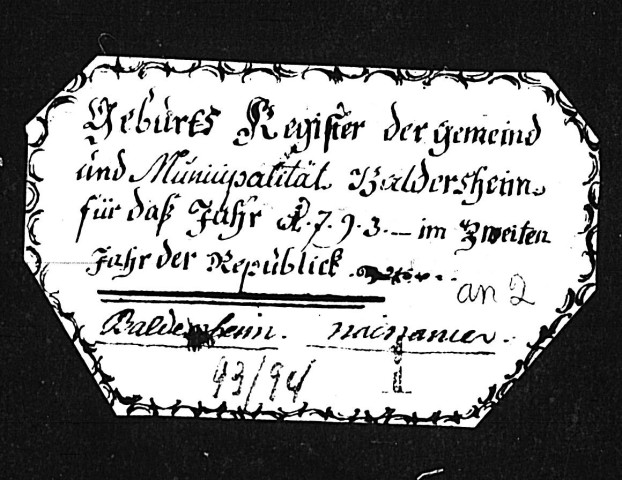 Geburts Register der gemeind
und Municipalität Baldersheim
für daß Jahr 1.7.9.3.— im Zweiten
Jahr der Republick
an 2
Baldersheim. naissances.
93/94
1